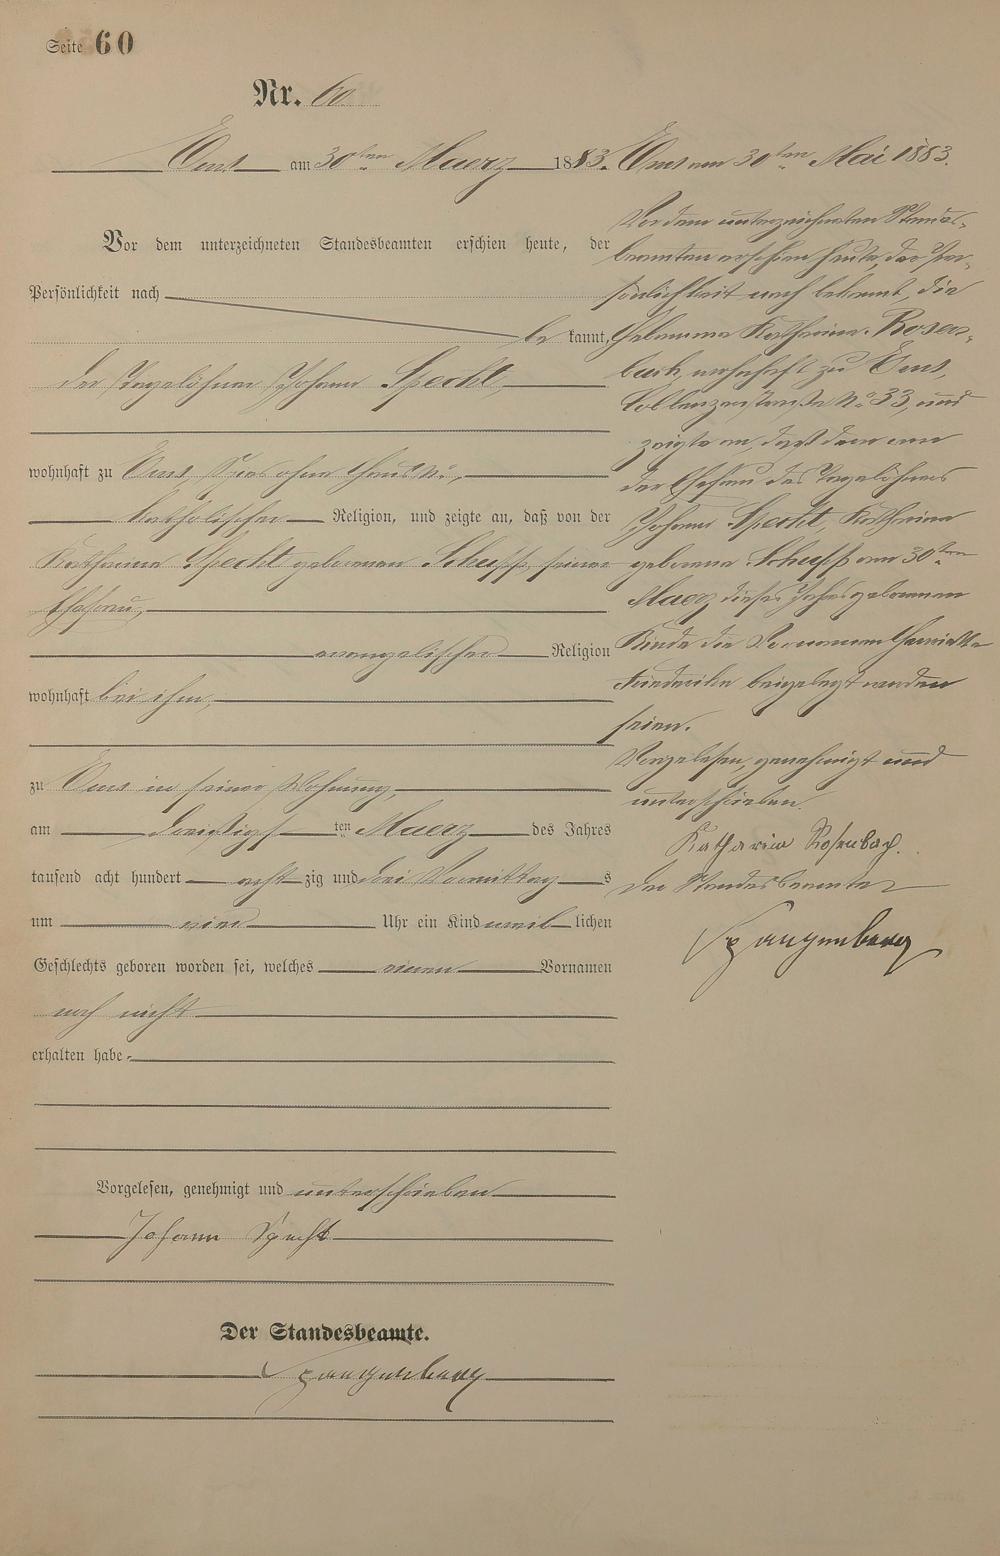 Seite 60
Nr. 60
Ems am 30ten Maerz 1883.
Vor dem unterzeichneten Standesbeamten erschien heute, der
Persönlichkeit nach
be kannt,
der Tagelöhner Johann Specht,
wohnhaft zu Ems, ohne Haus No,
katholischer Religion, und zeigte an, daß von der
Katharina Specht geborenen Schupp, seiner
Ehefrau,
evangelischer Religion
wohnhaft bei ihm,
zu Ems in seiner Wohnung,
am dreißigsten Maerz des Jahres
tausend acht hundert acht zig und drei Vormittag s
um vier Uhr ein Kind weib lichen
Geschlechts geboren worden sei, welches einen Vornamen
noch nicht
erhalten habe.
Vorgelesen, genehmigt und unterschrieben
Johann Specht
Der Standesbeamte.
Spangenberg
Ems am 30ten Mai 1883.
Vor dem unterzeichneten Standes-
beamten erschien heute, der Per-
sönlichkeit nach bekannt, die
Hebamme Katharina Rosen-
bach, wohnhaft zu Ems,
Coblenzerstraße No 33, und
zeigte an, daß dem von
der Ehefrau des Tagelöhners
Johann Specht, Katharina
geborene Schupp am 30ten
Maerz dieses Jahres geborenen
Kinde die Vornamen Henriette
Friederike beigelegt worden
seien.
Vorgelesen, genehmigt und
unterschrieben.
Katharina Rosenbach.
Der Standesbeamte
Spangenberg